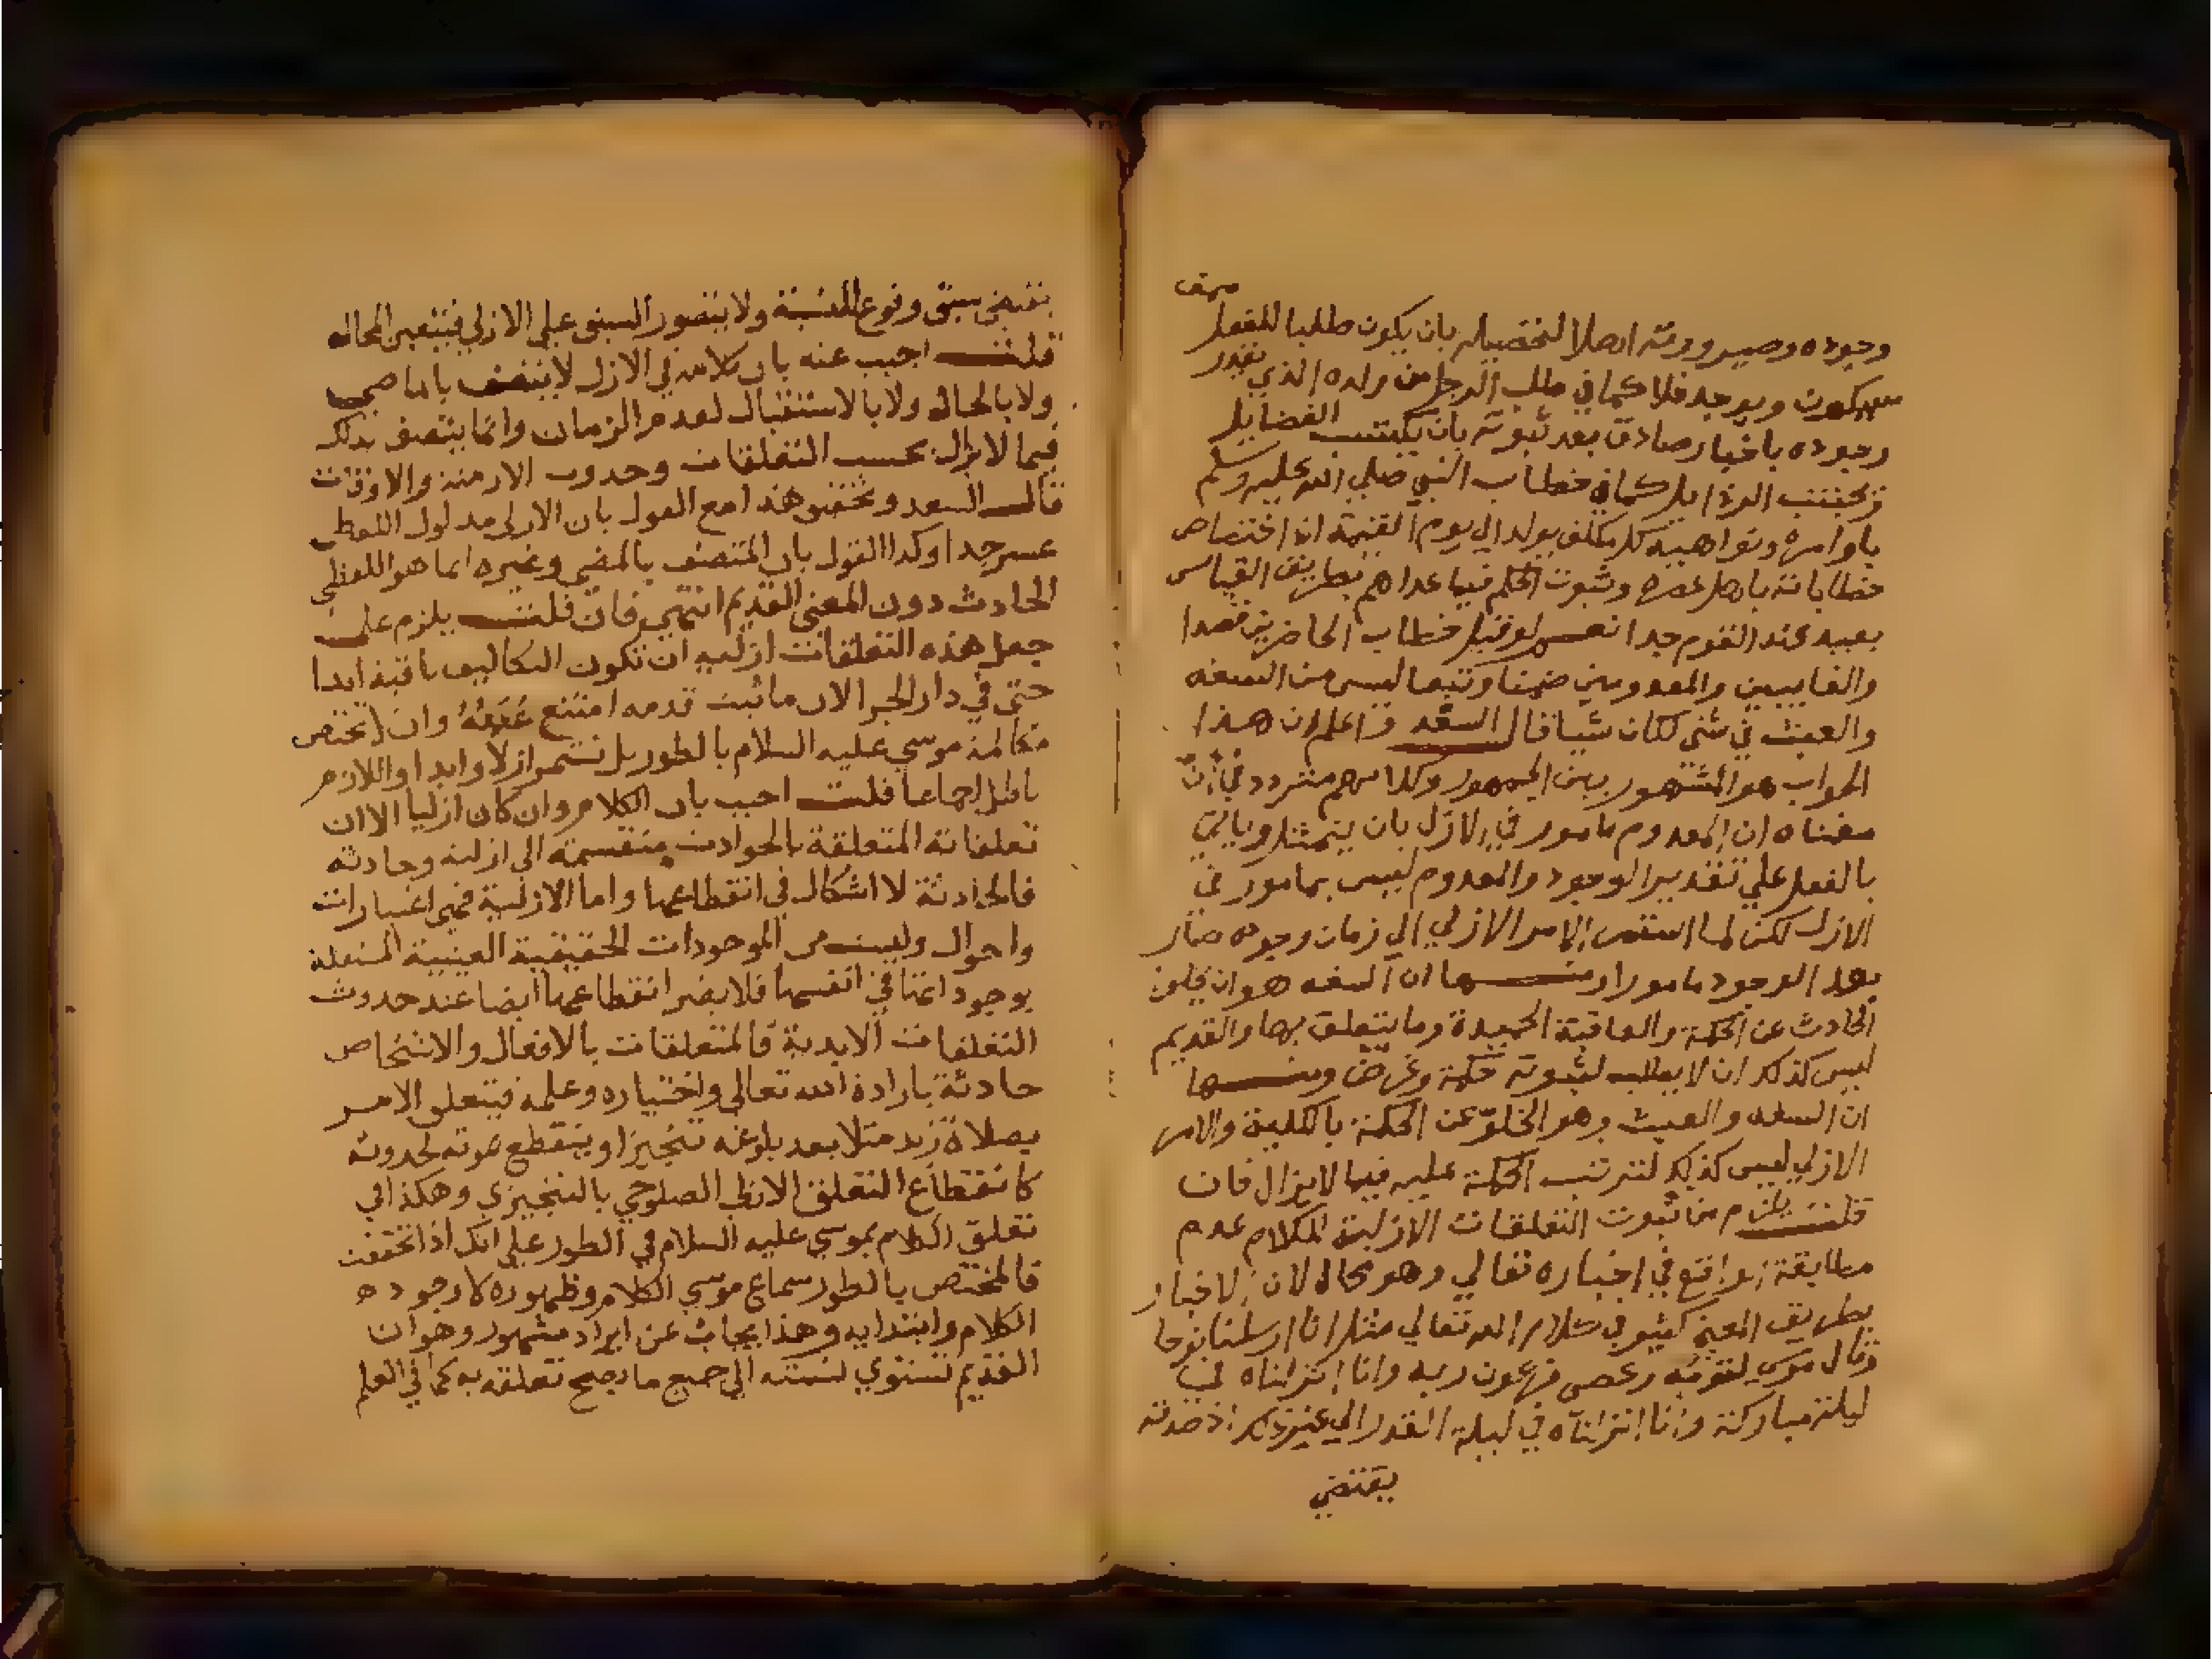 وجوده وصيرورته اهلا لتحصيله بان يكون طلبا للفعل ممن
سيكون ويوجد فلا كما في طلب الرجل من ولده الذي يقدر
وجوده باخبار صادق بعد ثبوته بان يكتسب الفضايل
ويجتنب الرذايل كما في خطاب النبي صلي الله عليه وسلم
باوامره ونواهيه كل مكلف يولد الي يوم القيمة اذ اختصاص
خطاباته باهل عصره وثبوت الحكم فيما عداهم بطريق القياس
بعيد عند القوم جدا نعم لو قيل خطاب الحاضرين قصدا
والغايبين والمعدومين ضمنا وتبعا ليس من السفه
والعبث في شي لكان شيا قال السعد واعلم ان هذا
الجواب هو المشهور بين الجمهور وكلامهم متردد في ان
معناه ان المعدوم مامور في الازل بان يتمثل وياتي
بالفعل علي تقدير الوجود والمعدوم ليس بمامور في
الازل لكن لما استمر الامر الازلي الي زمان وجوده صار
بعد الوجود مامورا ومنها ان السفه هو ان يخلو
الحادث عن الحكمة والعاقبة الحميدة وما يتعلق بها والقديم
ليس كذلك اذ لا يطلب لثبوته حكمة وغرض ومنها
ان السفه والعبث وهو الخلو عن الحكمة بالكلية والامر
الازلي ليس كذلك لترتب الحكمة عليه فيما لا يزال فان
قلت يلزم من ثبوت التعلقات الازلية للكلام عدم
مطابقة الواقع في اخباره تعالي وهو محال لان الاخبار
بطريق المضي كثير في كلام الله تعالي مثل انا ارسلنا نوحا
وقال موسي لقومه وعصي فرعون ربه وانا انزلناه في
ليلة مباركة وانا انزلناه في ليلة القدر الي غير ذلك اذ صدقه
يقتضي
يقتضي سبق وقوع النسبة ولا يتصور السبق علي الازلي فيتعين المحال
قلت اجيب عنه بان كلامه في الازل لا يتصف بالماضي
ولا بالحال ولا بالاستقبال لعدم الزمان وانما يتصف بذلك
فيما لا يزال بحسب التعلقات وحدوث الازمنة والاوقات
قال السعد وتحقيق هذا مع القول بان الازلي مدلول اللفظي
عسر جدا وكذا القول بان المتصف بالمضي وغيره انما هو اللفظي
الحادث دون المعني القديم انتهي فان قلت يلزم على
جعل هذه التعلقات ازلية ان تكون التكاليف باقية ابدا
حتى في دار الجزا لان ما ثبت قدمه امتنع عدمه وان لا تختص
مكالمة موسي عليه السلام بالطور بل تستمر ازلا وابدا واللازم
باطل اجماعا قلت اجيب بان الكلام وان كان ازليا الا ان
تعلقاته المتعلقة بالحوادث منقسمة الي ازلية وحادثه
فالحادثة لا اشكال في انقطاعها واما الازلية فهي اعتبارات
واحوال وليست من الموجودات الحقيقية العينية المستقلة
بوجوداتها في انفسها فلا يضر انقطاعها ايضا عند حدوث
التعلقات الابدية فالمتعلقات بالافعال والاشخاص
حادثة بارادة الله تعالي واختياره وعلمه فيتعلق الامر
بصلاة زيد مثلا بعد بلوغه تنجيزا وينقطع موته لحدوثه
كانقطاع التعلق الازلي الصلوحي بالتنجيزي وهكذا في
تعلق الكلام بموسي عليه السلام في الطور علي انك اذا تحققت
فالمختص بالطور سماع موسي الكلام وظهوره لا وجوده
الكلام وابتدايه وهذا يجاب عن ايراد مشهور وهو ان
القديم تستوي نسبته الي جميع ما يصح تعلقه به كما في العلم